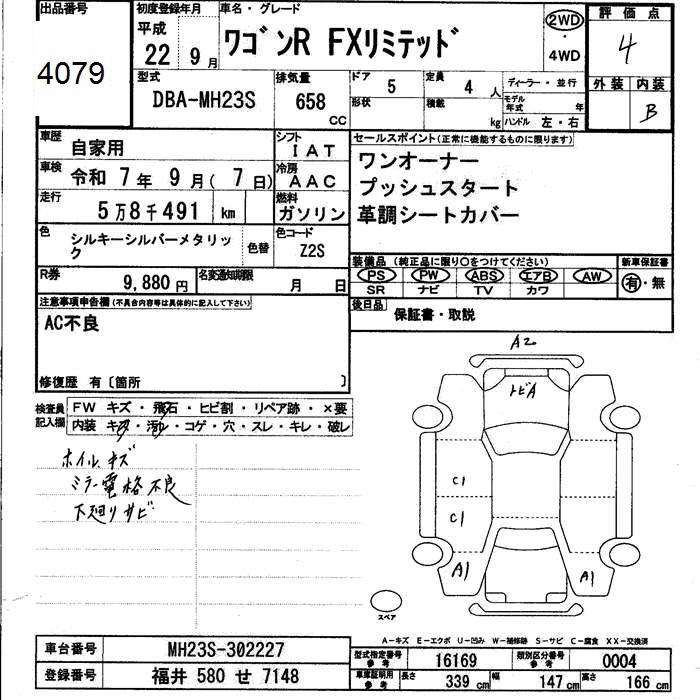 出品番号
4079
初度登録年月
平成
22 9月
車名・グレード
ワゴンR FXリミテッド
2WD
4WD
評価点
4
外装 内装
B
型式
DBA-MH23S
排気量
658
CC
ドア 5
定員 4 人
形状
積載 kg
ディーラー・並行
モデル年式 年
ハンドル 左・右
車歴
自家用
車検 令和 7年 9月( 7日)
走行
5万8千491 km
色
シルキーシルバーメタリック
色替
シフト
IAT
冷房
AAC
燃料
ガソリン
色コード
Z2S
R券
9,880円
名変通知期限
月 日
セールスポイント(正常に機能するものに限ります)
ワンオーナー
プッシュスタート
革調シートカバー
装備品 (純正品に限り○をつけてください)
PS PW ABS エアB AW
SR ナビ TV カワ
新車保証書
有・無
後日品
保証書・取説
注意事項申告欄(不具合内容等は具体的に記入して下さい)
AC不良
修復歴 有〔箇所 〕
検査員記入欄
FW キズ・飛石・ヒビ割・リペア跡・×要
内装 キズ・汚れ・コゲ・穴・スレ・キレ・破レ
ホイルキズ
ミラー電格不良
下廻りサビ
A2
トビA
C1
C1
A1
A1
スペア
A-キズ E-エクボ U-凹み W-補修跡 S-サビ C-腐食 XX-交換済
車台番号 MH23S-302227
登録番号 福井 580 せ 7148
型式指定番号 参考 16169
類別区分番号 参考 0004
車庫証明用 参考 長さ 339 cm 幅 147 cm 高さ 166 cm